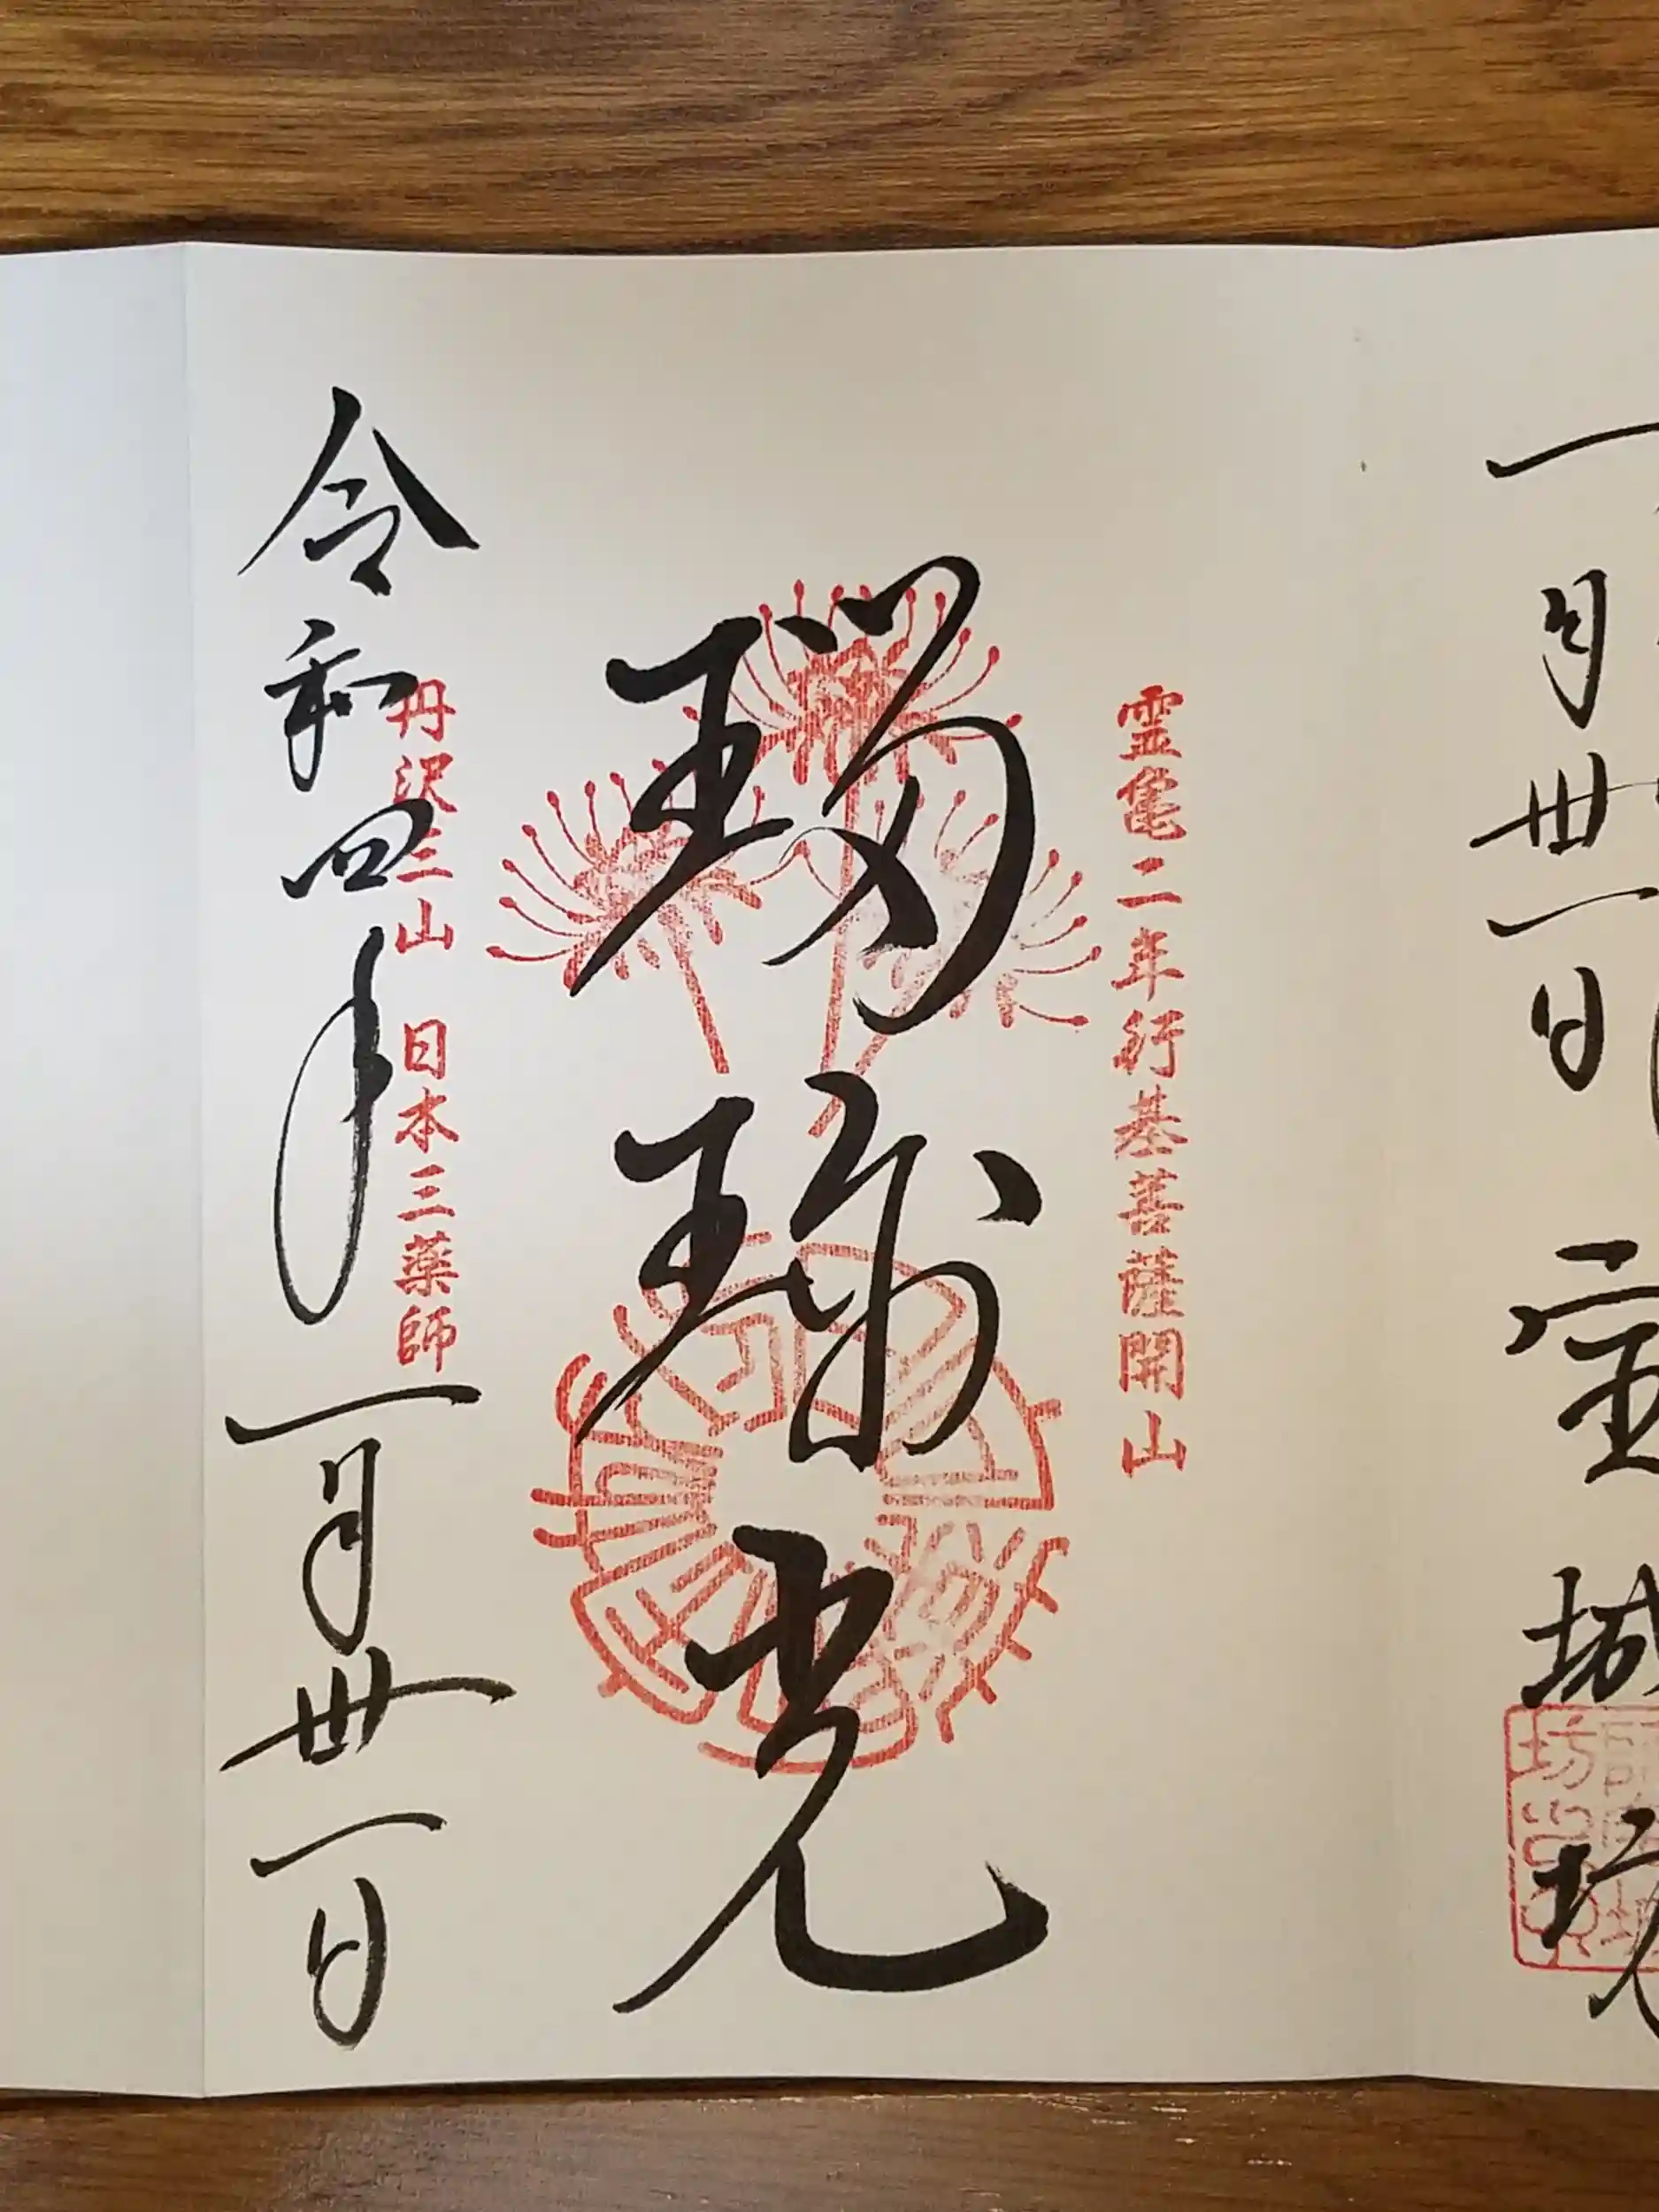 一月丗一日
宝城坊
霊亀二年行基菩薩開山
瑠璃光
丹沢三山 日本三薬師
令和四年一月丗一日